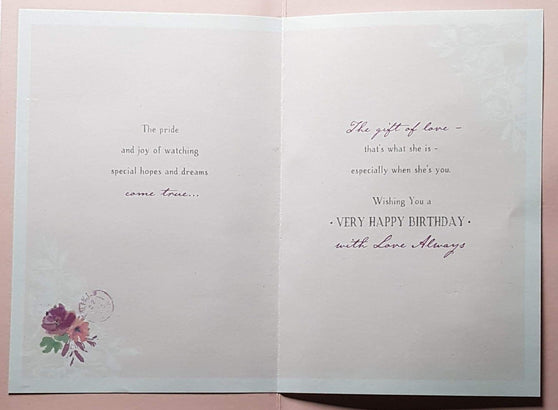 The pride
and joy of watching
special hopes and dreams
come true...
The gift of love -
that's what she is -
especially when she's you.
Wishing You a
· VERY HAPPY BIRTHDAY ·
with Love Always